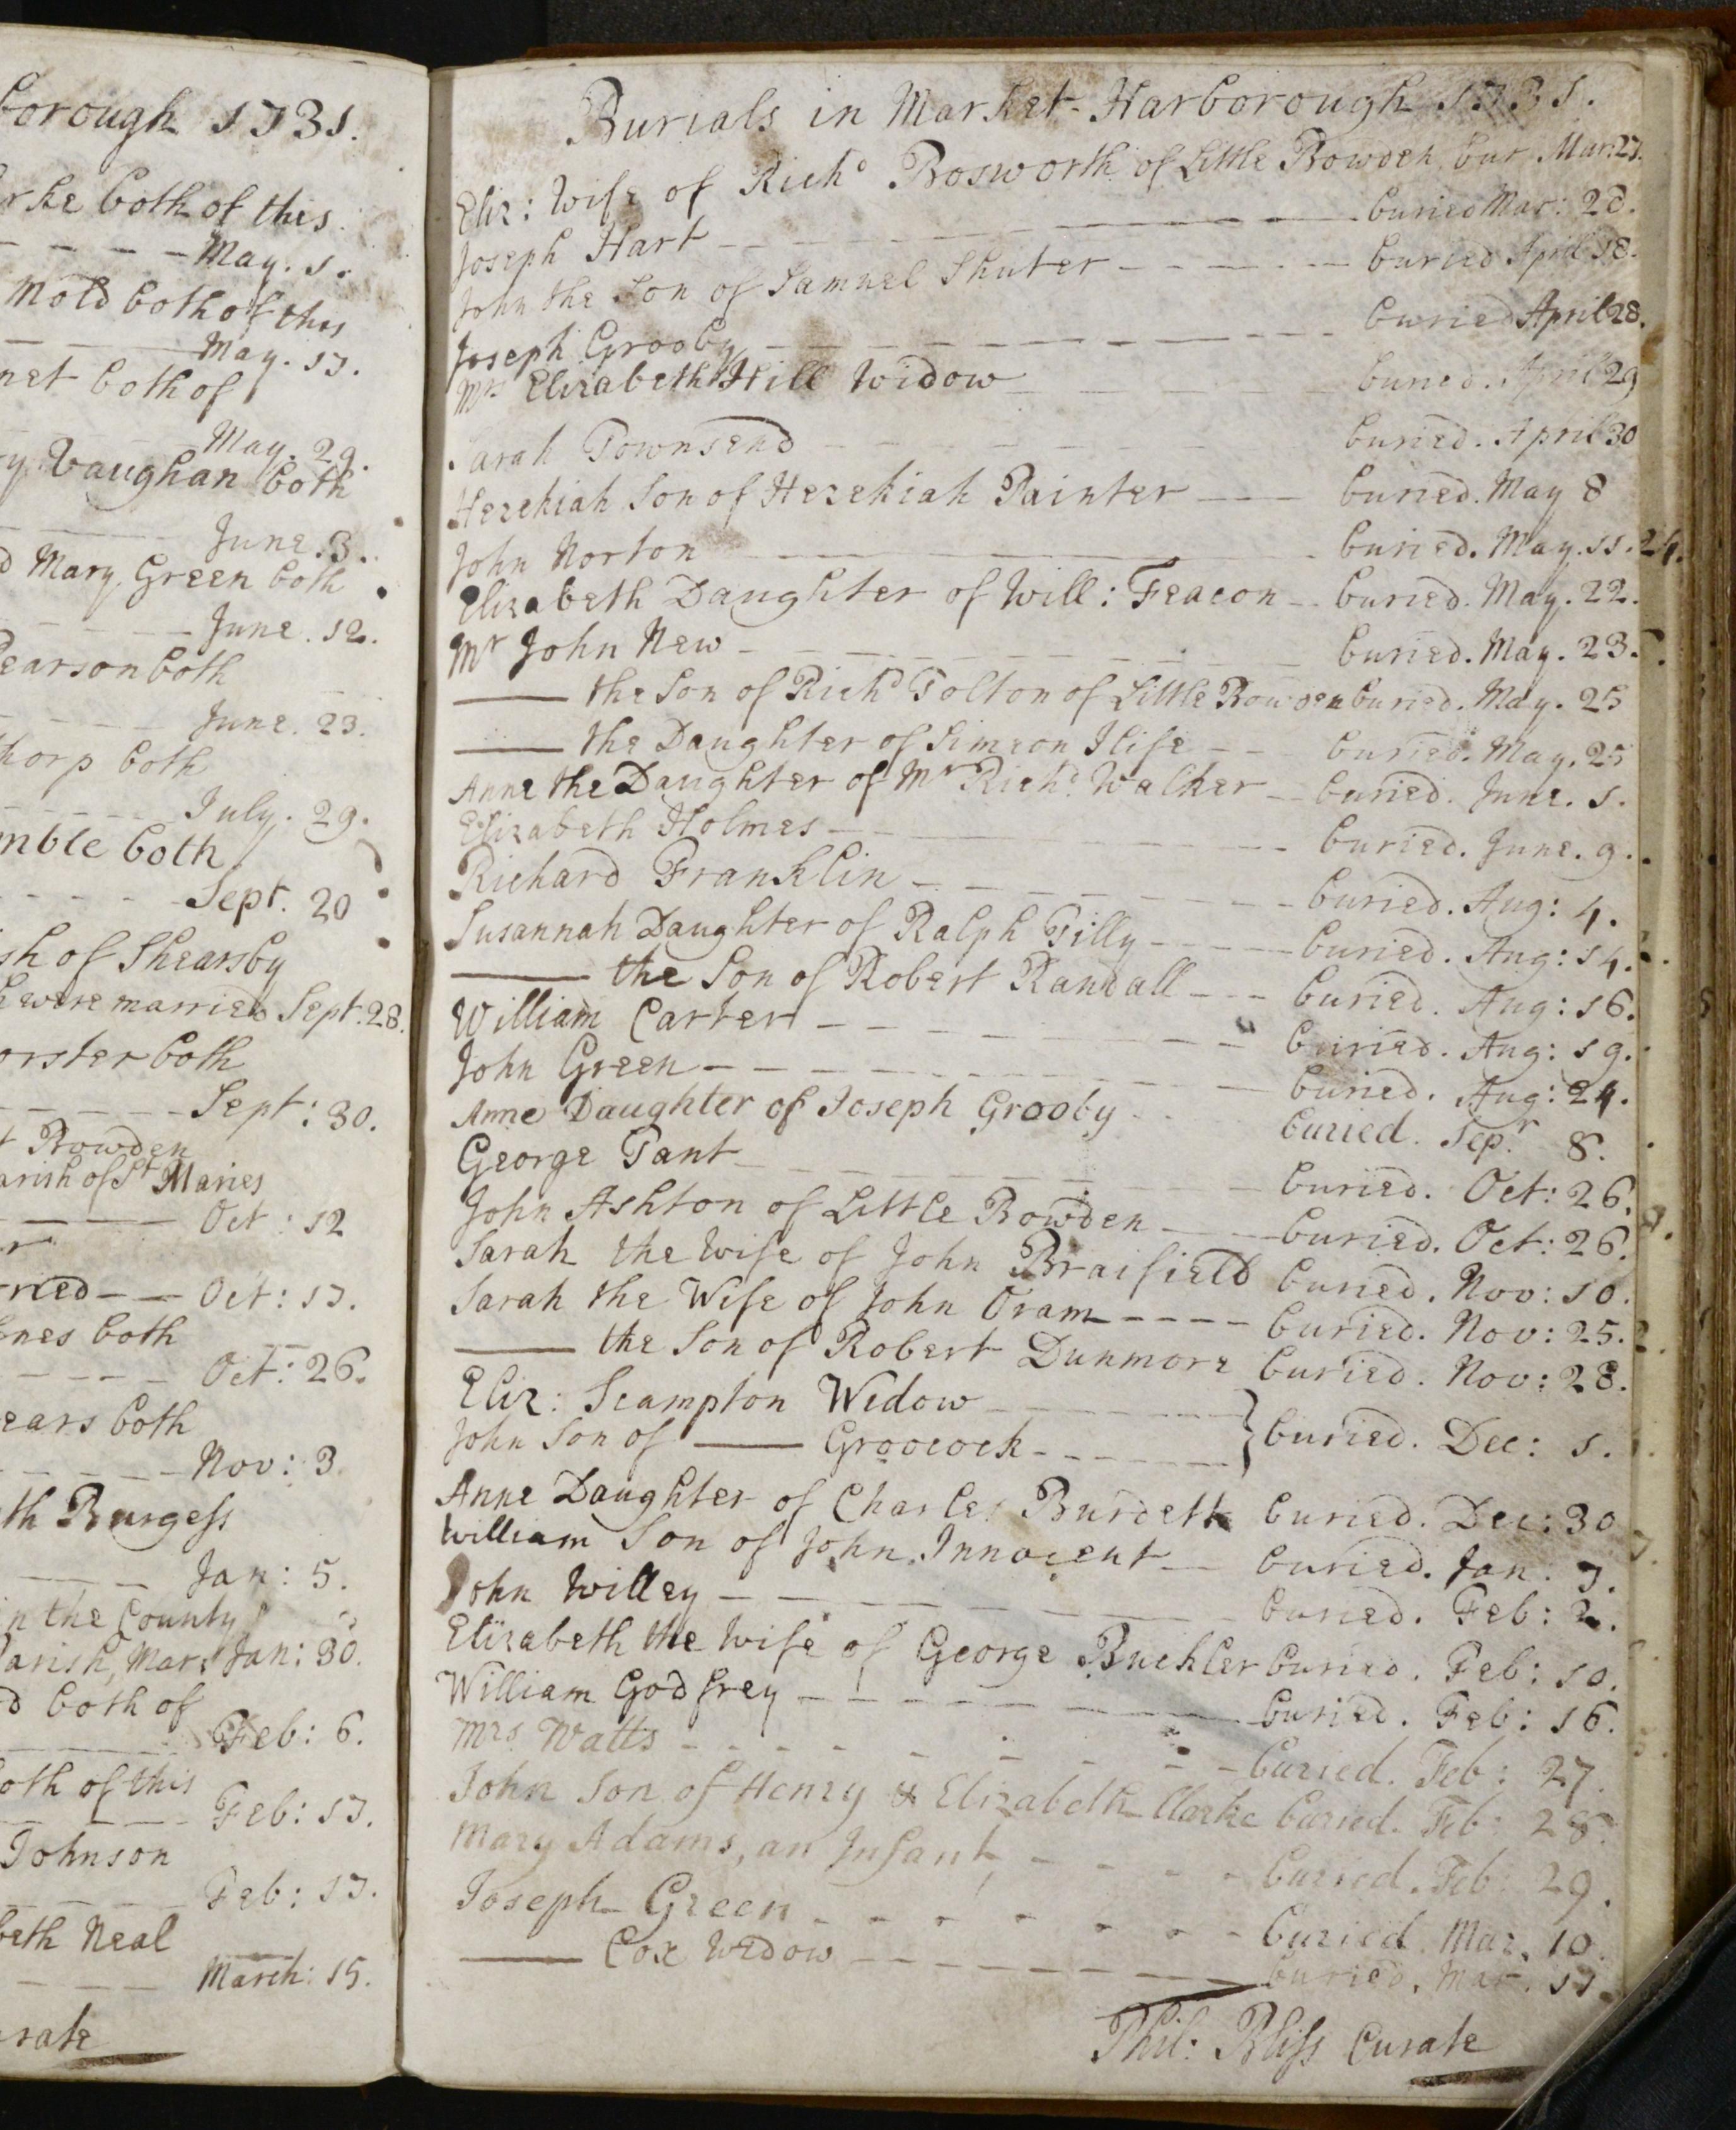 borough 1731.
rke both of this
May. 1.
Mold both of this
May. 17.
net both of
May. 29.
y Vaughan both
June. 3.
d Mary Green both
June. 12.
Pearson both
June. 23.
horp both
July. 29.
mble both
Sept. 20
ish of Shearsby
h were married Sept. 28.
orster both
Sept: 30.
t Bowden
arish of St Maries
Oct: 12
rried Oct: 17.
ones both
Oct: 26.
ears both
Nov: 3
th Burgess
Jan: 5.
in the County
Parish, Mar: Jan: 30.
d both of
Feb: 6.
both of this
Feb: 17.
Johnson
Feb: 17.
beth Neal
March: 15.
urate
Burials in Market-Harborough 1731.
Eliz: Wife of Richd Bosworth of Little Bowden bur Mar: 27.
Joseph Hart buried Mar: 28.
John the Son of Samuel Shuter buried April 18.
Joseph Grooby buried April 28.
Mrs Elizabeth Hill Widow buried. April 29
Sarah Townsend buried. April 30
Hezekiah Son of Hezekiah Painter buried. May 8
John Norton buried. May. 11.
Elizabeth Daughter of Will: Feacon buried. May. 22.
Mr John New buried. May. 23.
— the Son of Richd Tolton of Little Bowden buried. May. 25
— the Daughter of Simeon Ilife buried. May. 25
Anne the Daughter of Mr Richd Walker buried. June. 1.
Elizabeth Holmes buried. June. 9.
Richard Franklin buried. Aug: 4.
Susannah Daughter of Ralph Tilly buried. Aug: 14.
— the Son of Robert Randall buried. Aug: 16.
William Carter buried. Aug: 19.
John Green buried. Aug: 24.
Anne Daughter of Joseph Grooby buried. Sepr. 8.
George Tant buried. Oct: 26.
John Ashton of Little Bowden buried. Oct: 26.
Sarah the Wife of John Braifield buried. Nov: 10.
Sarah the Wife of John Oram buried. Nov: 25.
— the Son of Robert Dunmore buried. Nov: 28.
Eliz: Scampton Widow
John Son of — Groocock } buried. Dec: 1.
Anne Daughter of Charles Burdett buried. Dec: 30
William Son of John Innocent buried. Jan: 7.
John Willey buried. Feb: 2.
Elizabeth the Wife of George Buckler buried. Feb: 10.
William Godfrey buried. Feb: 16.
Mrs Watts buried. Feb: 27.
John Son of Henry & Elizabeth Clarke buried. Feb: 28.
Mary Adams, an Infant, buried. Feb: 29.
Joseph Green buried. Mar. 10.
— Cox Widow buried. Mar. 17.
Phil: Bliss Curate